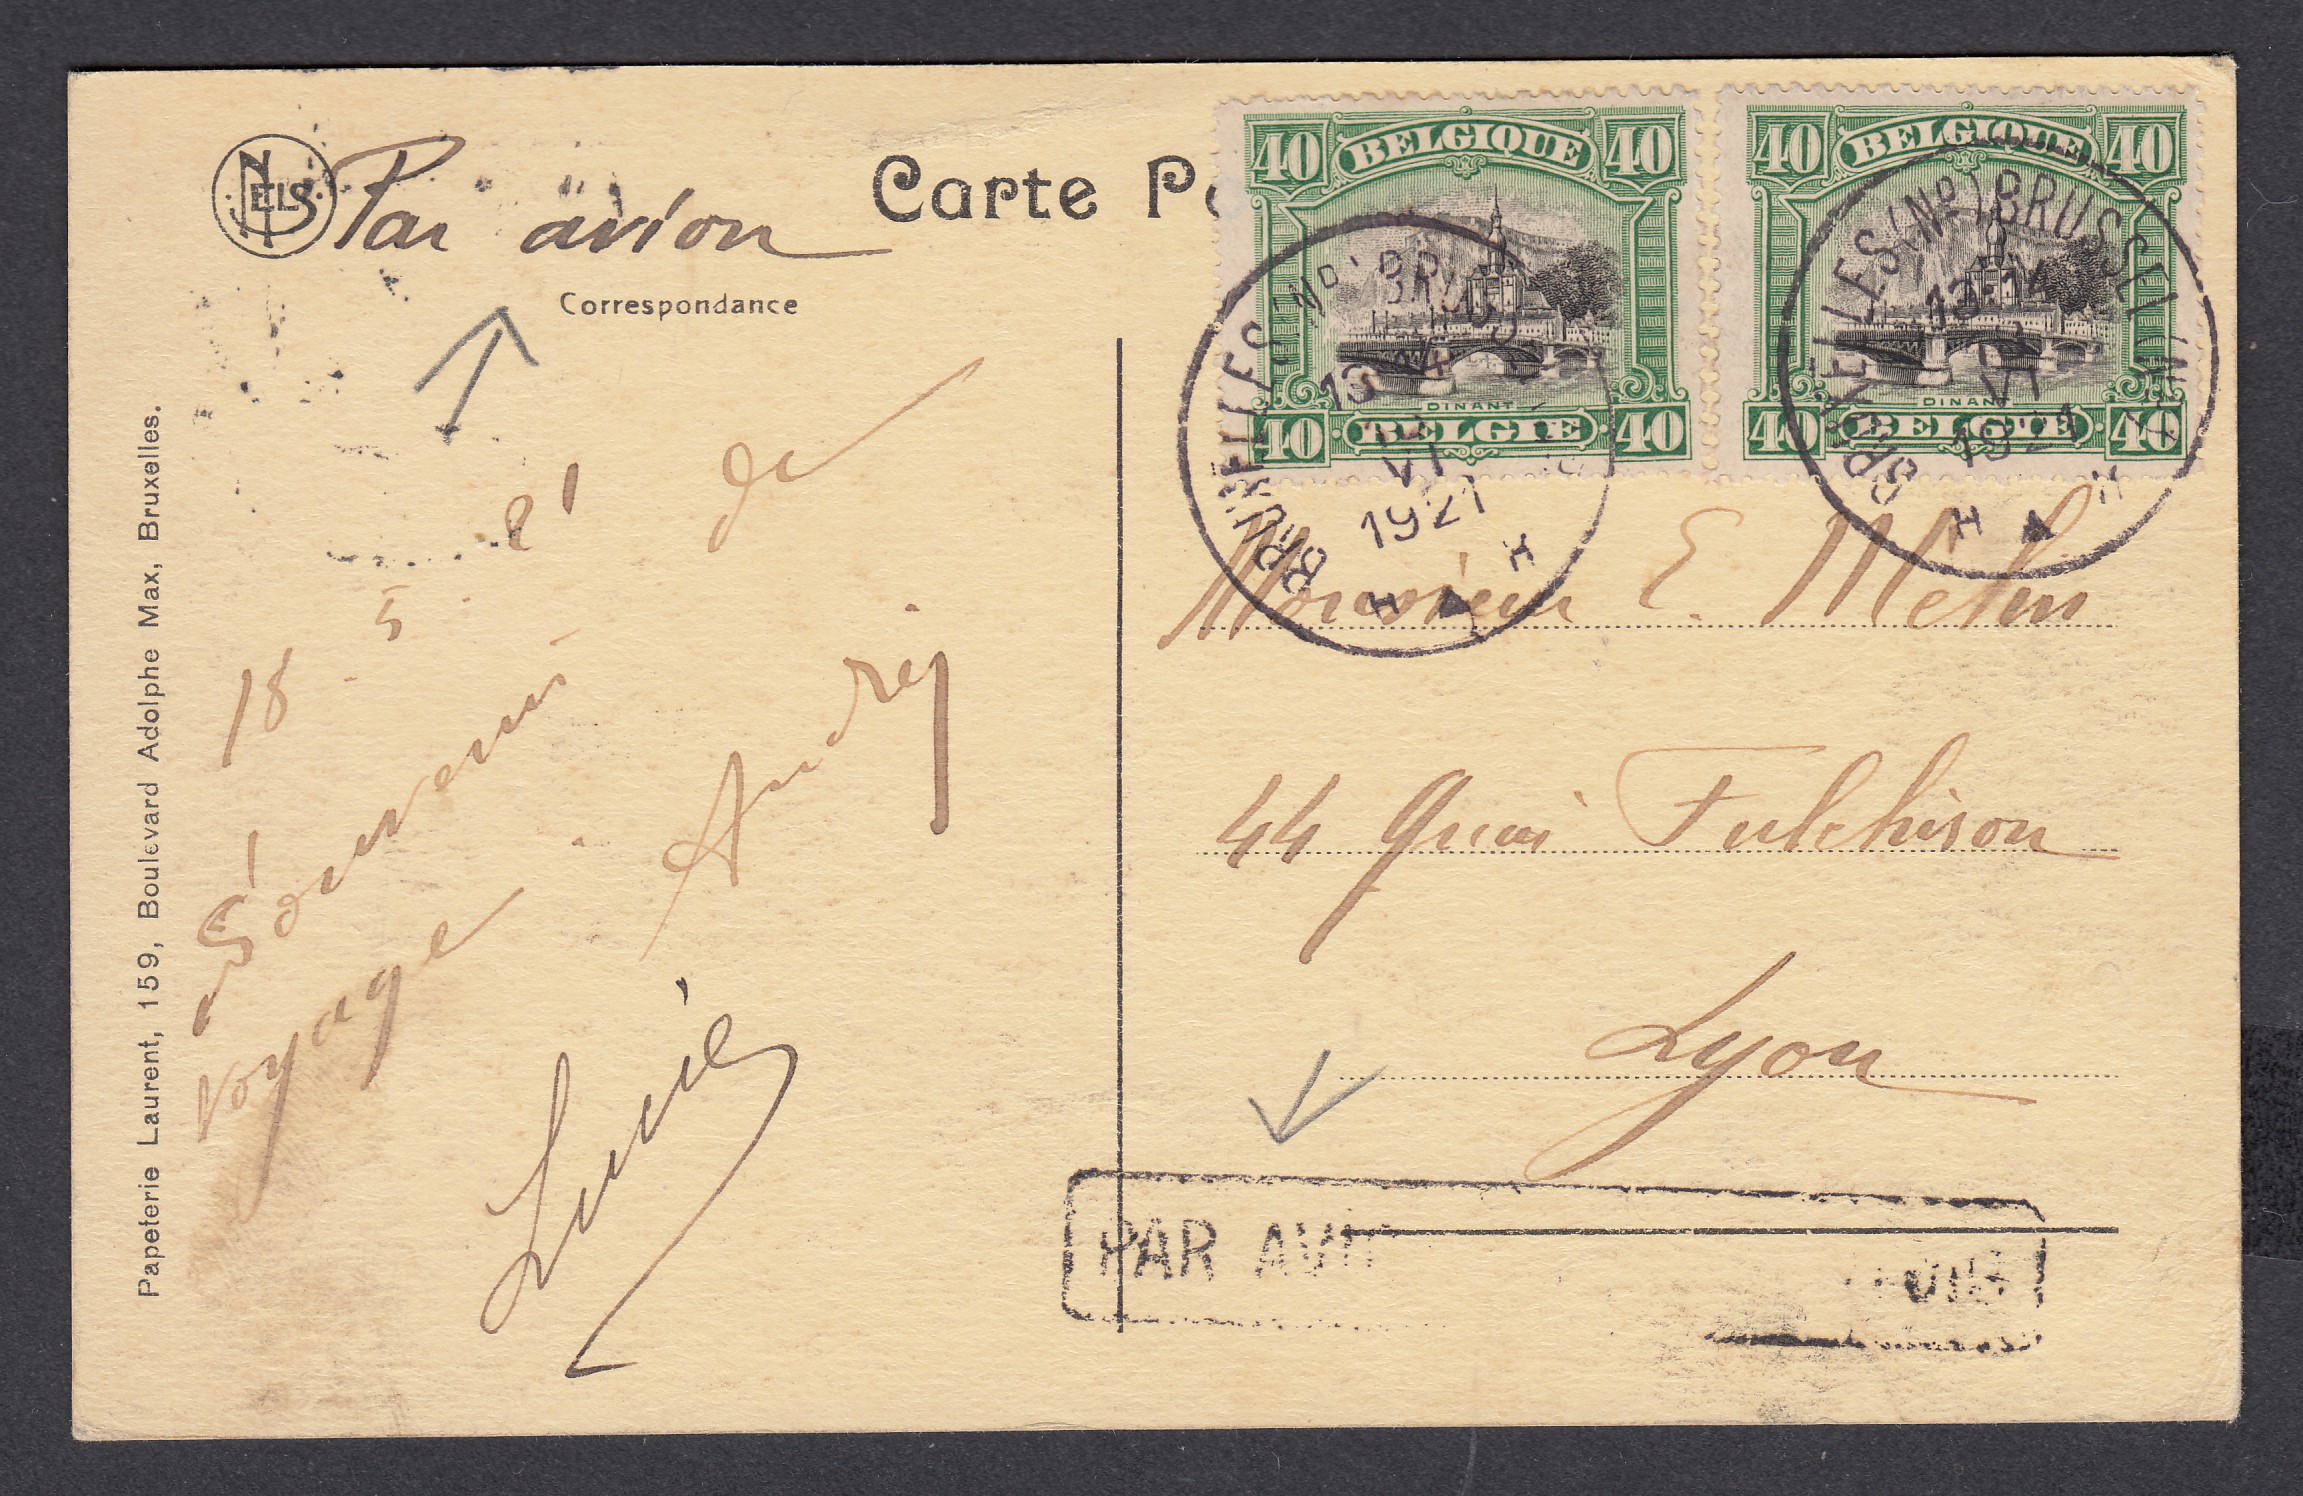 NELS
Par avion
Carte P
Correspondance
18 . 5 . 21
Souvenir de
voyage . André
Lucie
Papeterie Laurent, 159, Boulevard Adolphe Max, Bruxelles.
40 BELGIQUE 40
DINANT
40 · BELGIE · 40
40 BELGIQUE 40
DINANT
40 BELGIE · 40
BRUXELLES (No) BRUSSEL
13 14
VI
1921
H H
BRUXELLES (No) BRUSSEL (N
13 14
VI
1921
H H
Monsieur E. Melin
44 Quai Fulchiron
Lyon
PAR AVI